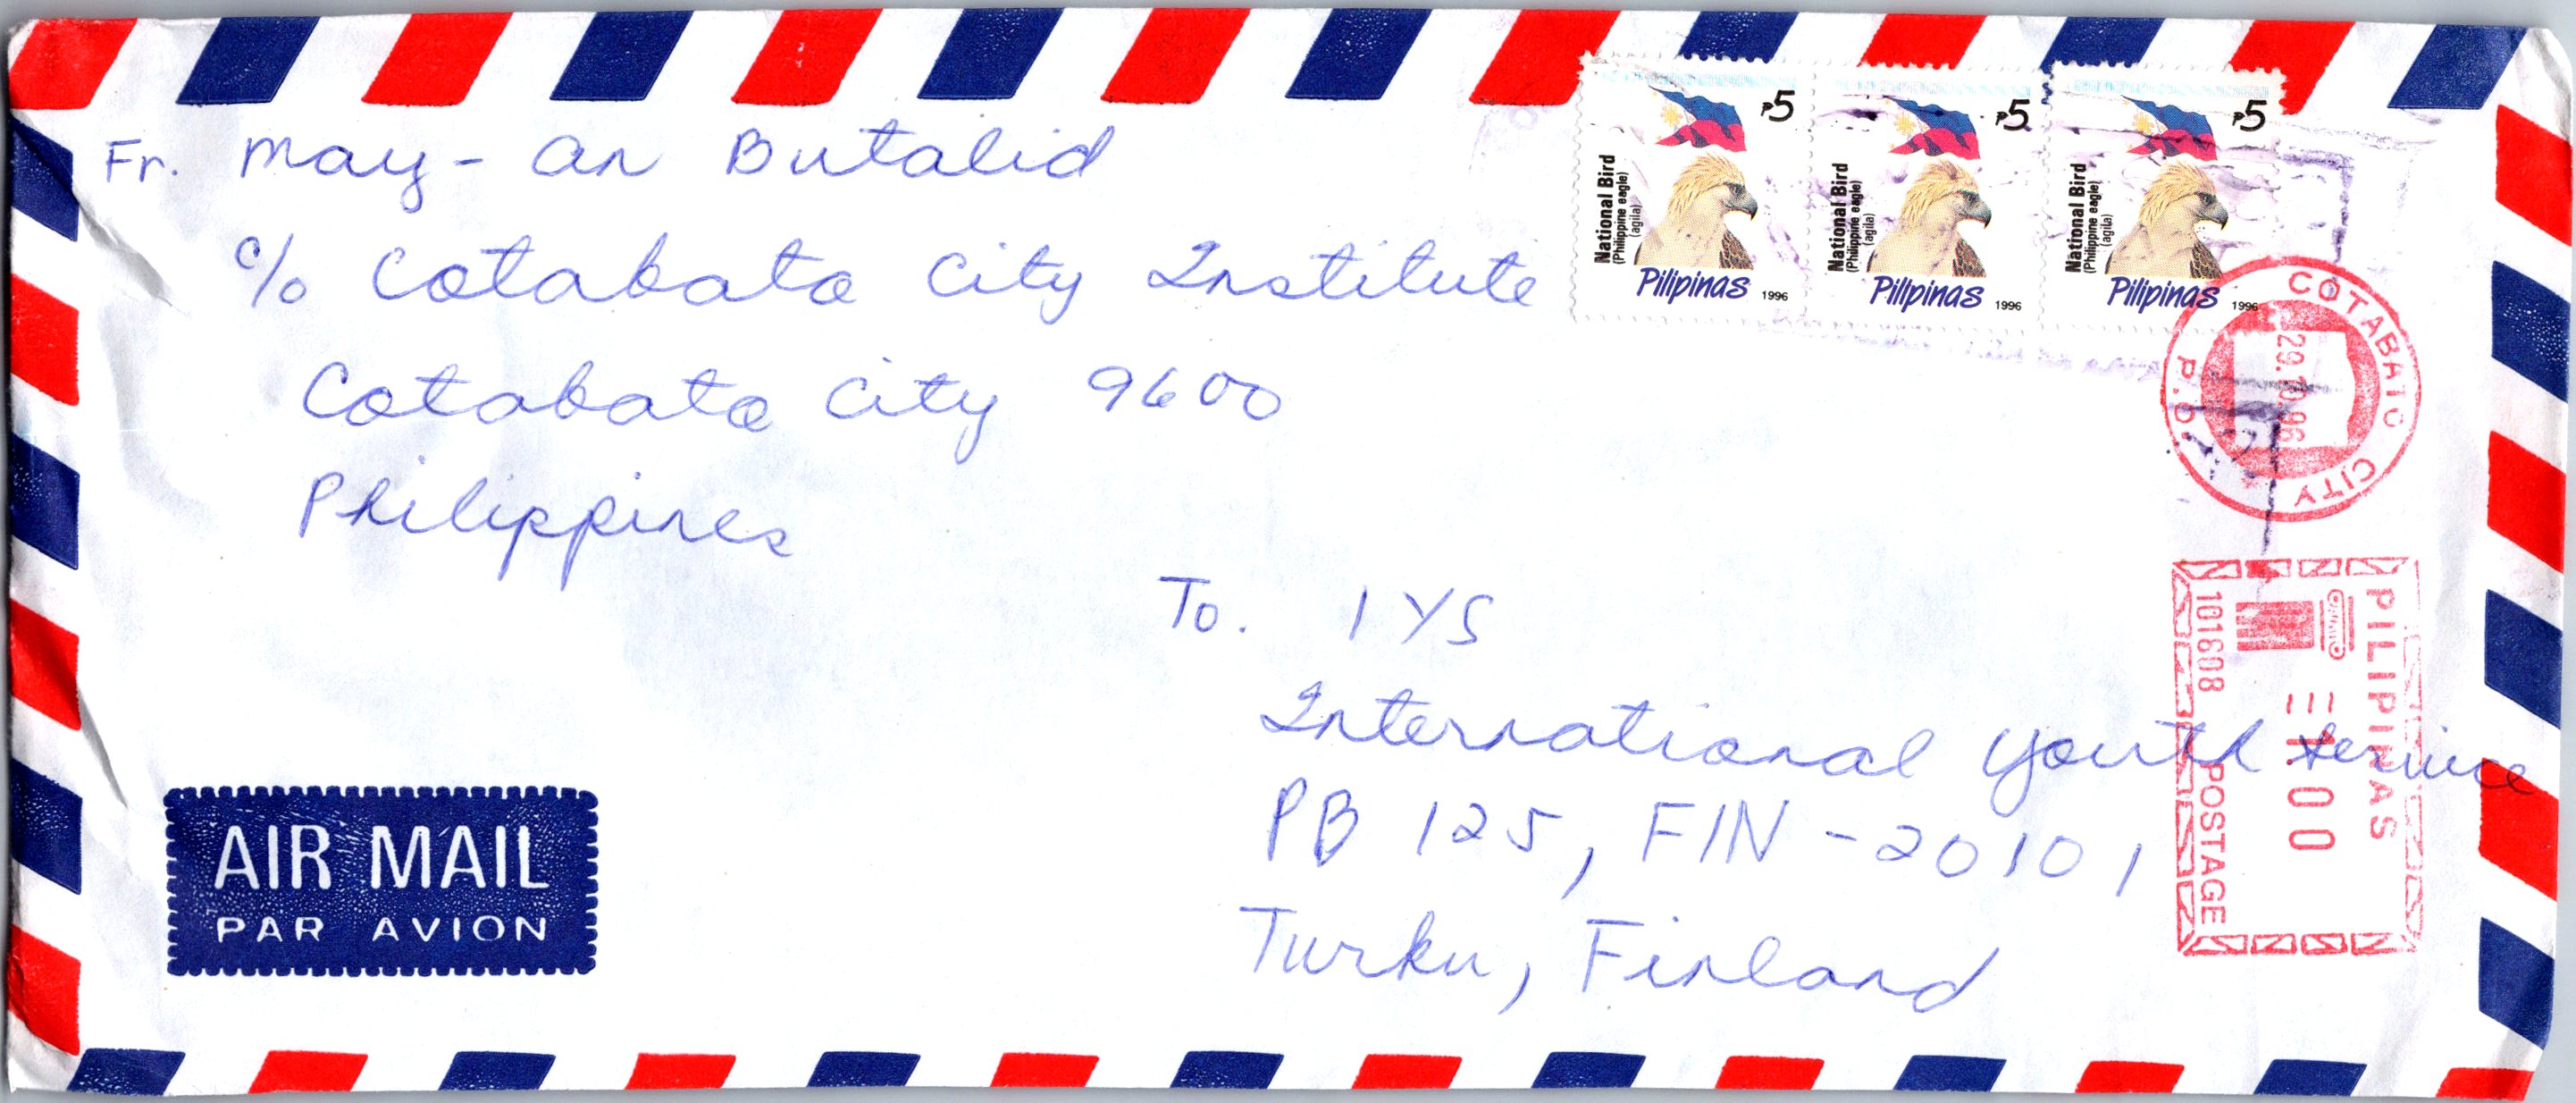 Fr. May-an Butalid
c/o Cotabato City Institute
Cotabato City 9600
Philippines
₱5
National Bird
(Philippine eagle)
(agila)
Pilipinas 1996
₱5
National Bird
(Philippine eagle)
(agila)
Pilipinas 1996
₱5
National Bird
(Philippine eagle)
(agila)
Pilipinas 1996
COTABATO CITY
P.O.
29.10.96
To. IYS
International Youth Service
PB 125, FIN-20101
Turku, Finland
PILIPINAS
00
101608 POSTAGE
AIR MAIL
PAR AVION